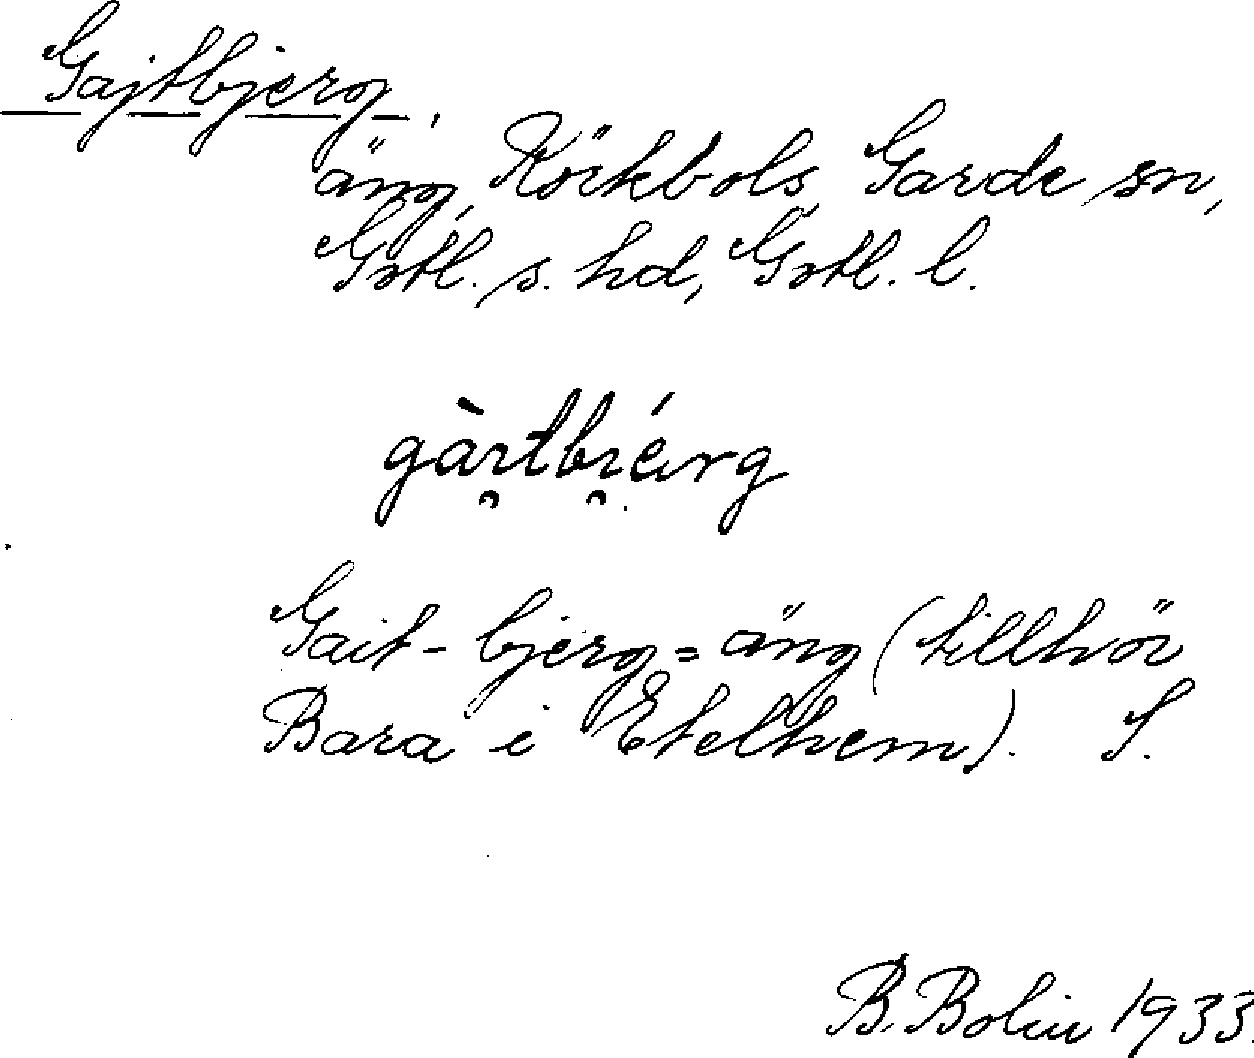 Gajtbjerg,
äng, Körkbols, Garde sn,
Gotl. s. hd, Gotl. l.
gàı̯tbı̯érg
Gait-bjerg = äng (tillhör
Bara i Etelhem). S.
B. Bolin 1933.